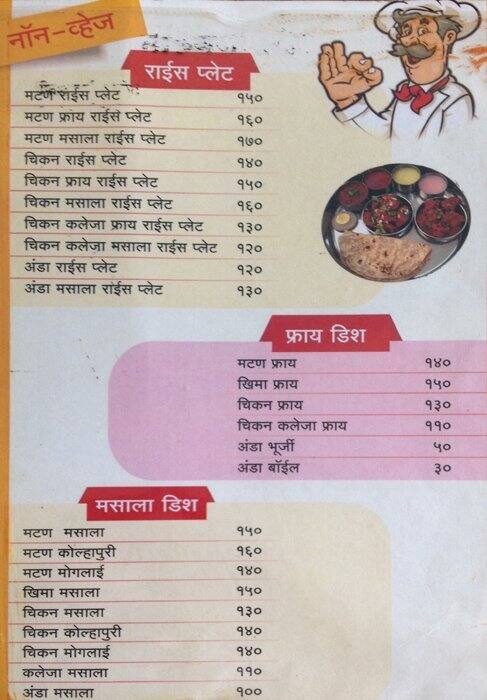 नॉन-व्हेज
राईस प्लेट
मटण राईस प्लेट १५०
मटण फ्राय राईस प्लेट १६०
मटण मसाला राईस प्लेट १७०
चिकन राईस प्लेट १४०
चिकन फ्राय राईस प्लेट १५०
चिकन मसाला राईस प्लेट १६०
चिकन कलेजा फ्राय राईस प्लेट १३०
चिकन कलेजा मसाला राईस प्लेट १२०
अंडा राईस प्लेट १२०
अंडा मसाला राईस प्लेट १३०
फ्राय डिश
मटण फ्राय १४०
खिमा फ्राय १५०
चिकन फ्राय १३०
चिकन कलेजा फ्राय ११०
अंडा भूर्जी ५०
अंडा बॉईल ३०
मसाला डिश
मटण मसाला १५०
मटण कोल्हापुरी १६०
मटण मोगलाई १४०
खिमा मसाला १५०
चिकन मसाला १३०
चिकन कोल्हापुरी १४०
चिकन मोगलाई १४०
कलेजा मसाला ११०
अंडा मसाला १००